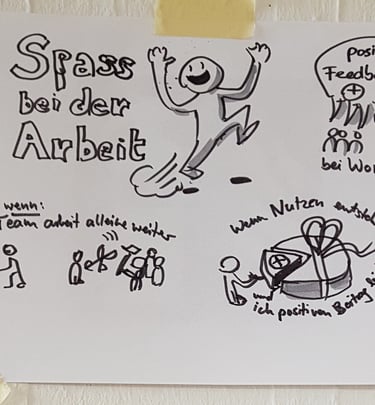 Spass
bei der
Arbeit
posi
Feedba
bei Wor
wenn:
Team arbeit alleine weiter
wenn Nutzen entste
und
ich positiven Beitrag